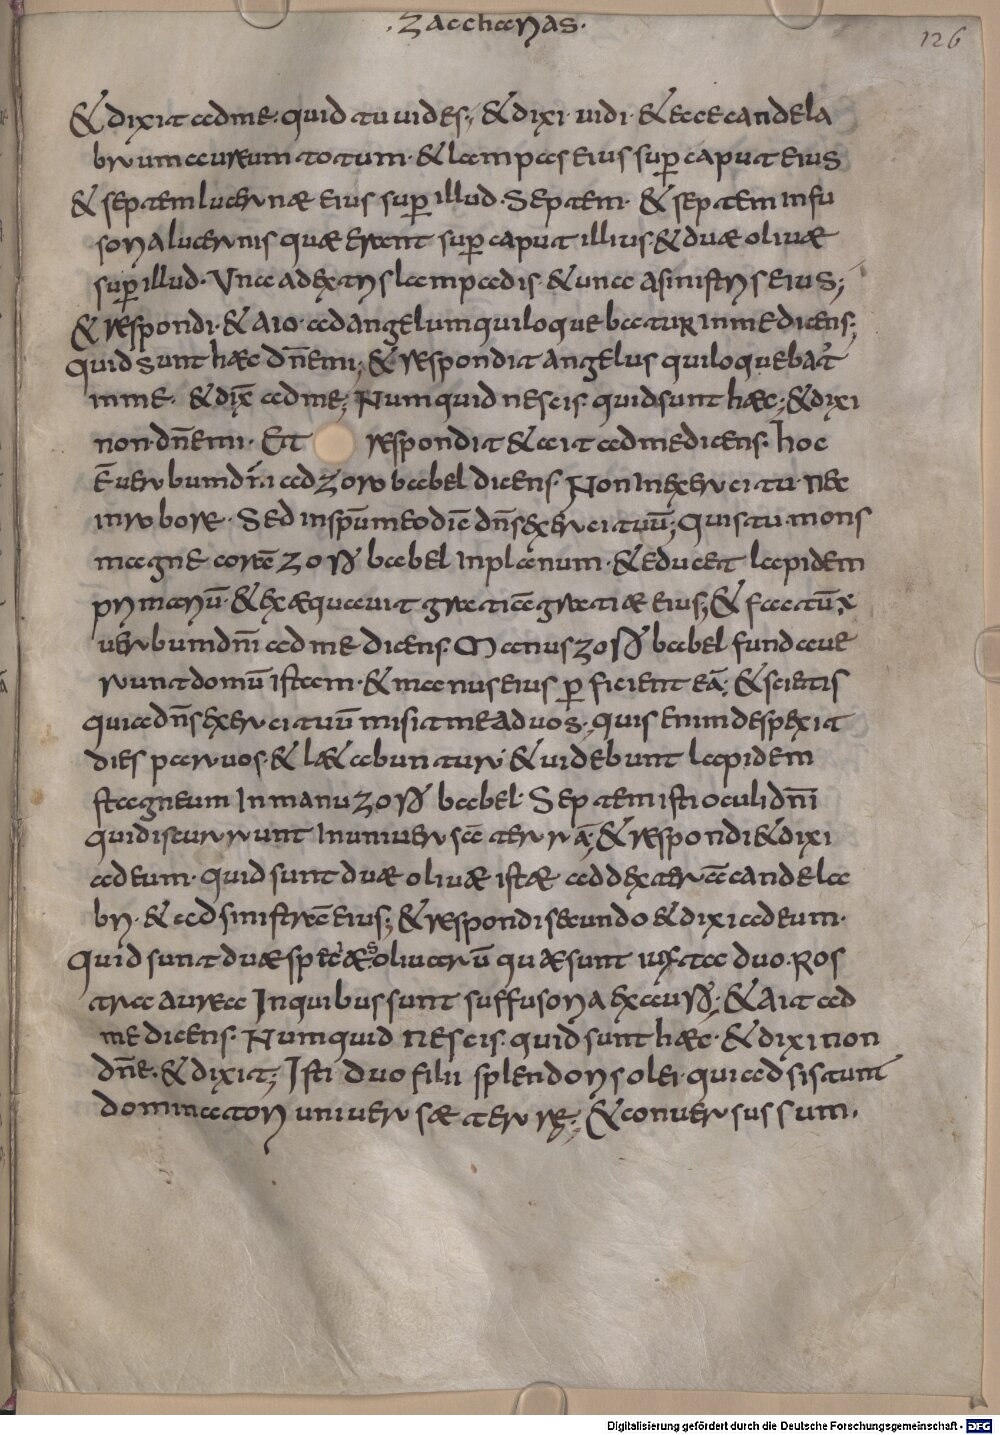 ·Zacharias·
126
& dixit ad me· quid tu uides; & dixi· uidi· & ecce candela
brum aureum totum· & lampas eius sup̄ caput eius
& septem lucernæ eius sup̄ illud· Septem· & septem infu
soria lucernis quæ erant sup̄ caput illius & duæ oliuæ
sup̄ illud· Una a dextris lampadis· & una a sinistris eius;
& respondi· & aio· ad angelum qui loquebatur in me dicens;
quid sunt hæc dn̄e mi; & respondit angelus qui loquebat̄
in me· & dix̄ ad me; Numquid nescis· quid sunt hæc; & dixi
non· dn̄e mi· Et respondit & ait ad me dicens· hoc
ē uerbum dn̄i ad zorobabel dicens· Non in exercitu· nec
in robore· Sed in sp̄u meo diē dn̄s exercituū; Quis tu mons
magne corā zorobabel in planum· & educet lapidem
primariū· & exæquauit gratiā gratiæ eius; & factū ÷
uerbum dn̄i ad me dicens· Manus zorobabel fundaue
runt domū istam· & manus eius p̄ficient eā; & scietis
quia dn̄s exercituū misit me ad uos· quis enim despexit
dies paruos· & lætabuntur· & uidebunt lapidem
stagneum In manu zorobabel· Septem isti oculi dn̄i
qui discurrunt In uniuersā terrā; & respondi & dixi
ad eum· quid sunt duæ oliuæ istæ ad dexterā candela
bri· & ad sinistrā eius; & respondi secundo & dixi ad eum·
Quid sunt duæ spicæ oliuarū quæ sunt iuxta duo· Ros
tra aurea In quibus sunt suffusoria ex auro· & ait ad
me dicens· Numquid nescis· quid sunt hæc· & dixi non
dn̄e· & dixit; Isti duo filii splendoris olei· qui adsistunt
dominatori uniuersæ terræ; & conuersus sum·
Digitalisierung gefördert durch die Deutsche Forschungsgemeinschaft - DFG